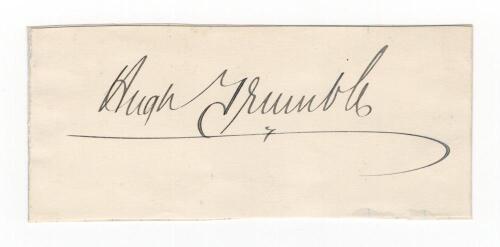 Hugh Trumble